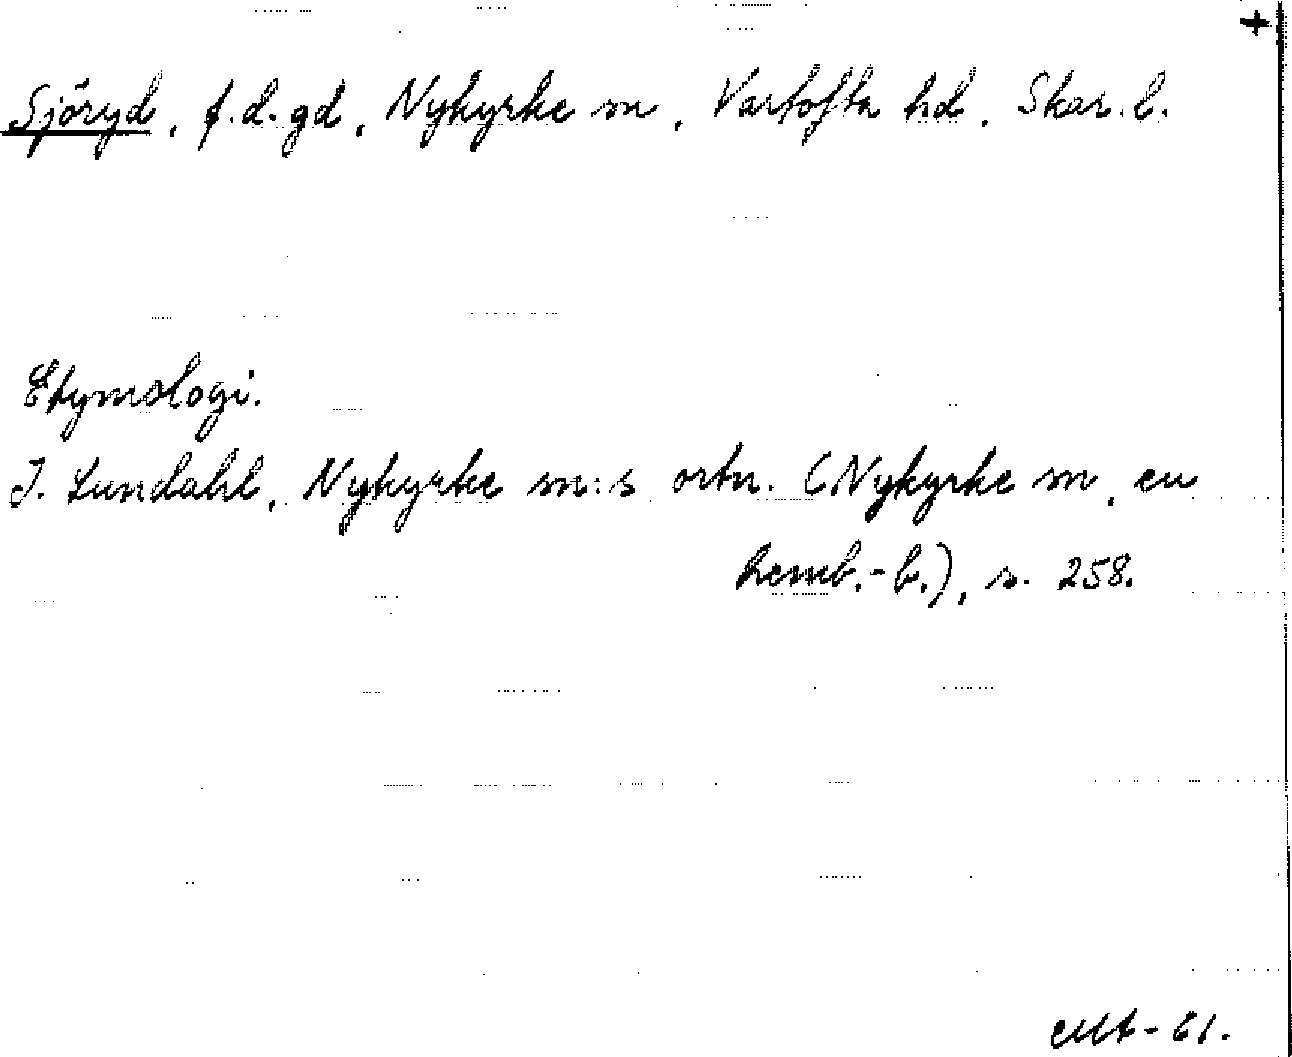 +
Sjöryd, f.d. gd, Nykyrke sn, Vartofta hd, Skar. l.
Etymologi.
I. Lundahl, Nykyrke sn:s ortn. (Nykyrke sn, en
hemb.-b.), s. 258.
-61.